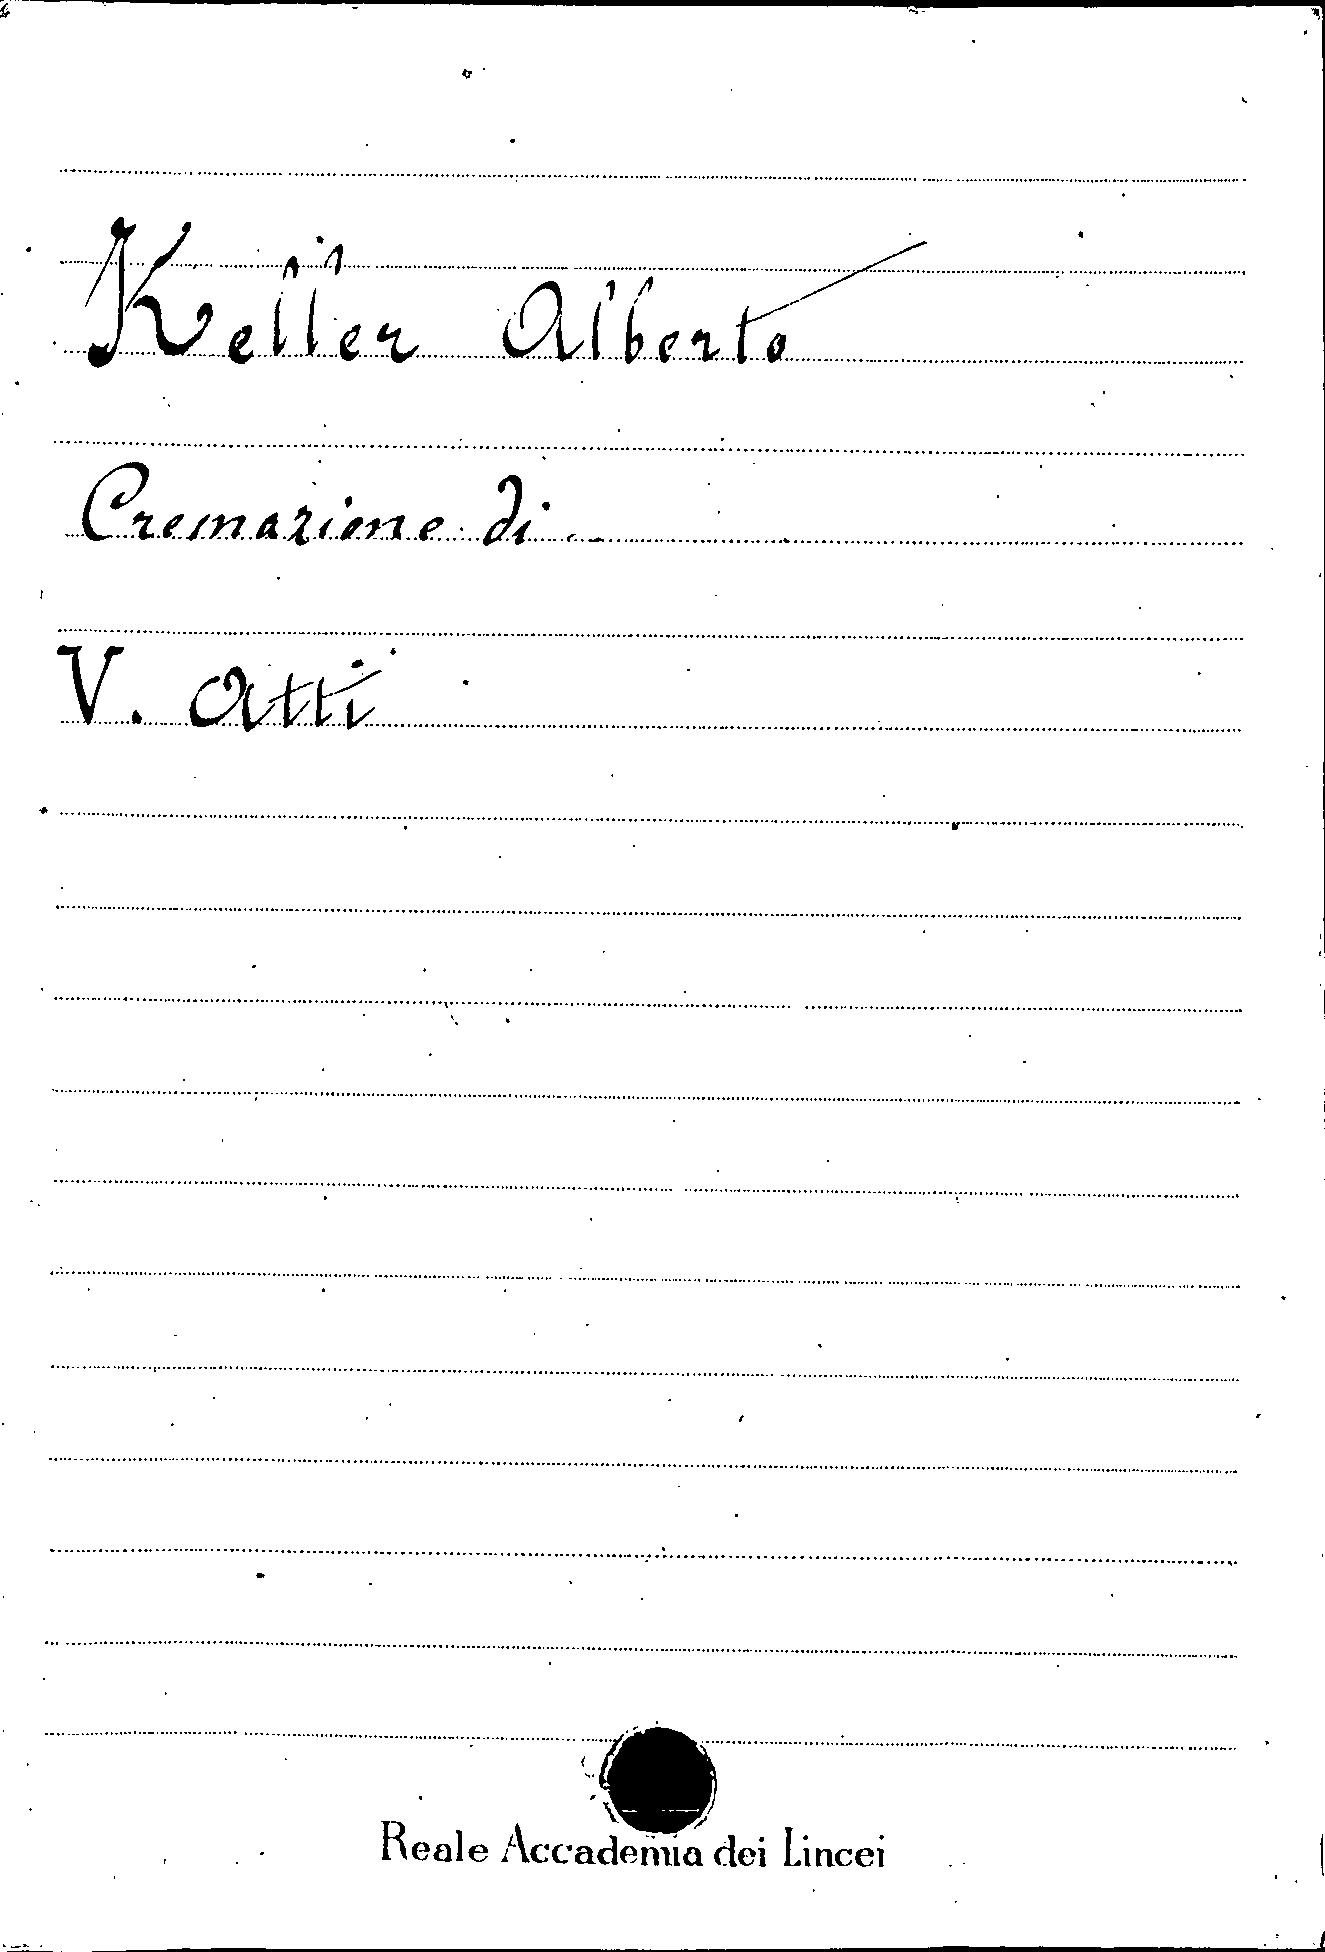 Keller Alberto
Cremazione di
V. Atti
Reale Accademia dei Lincei